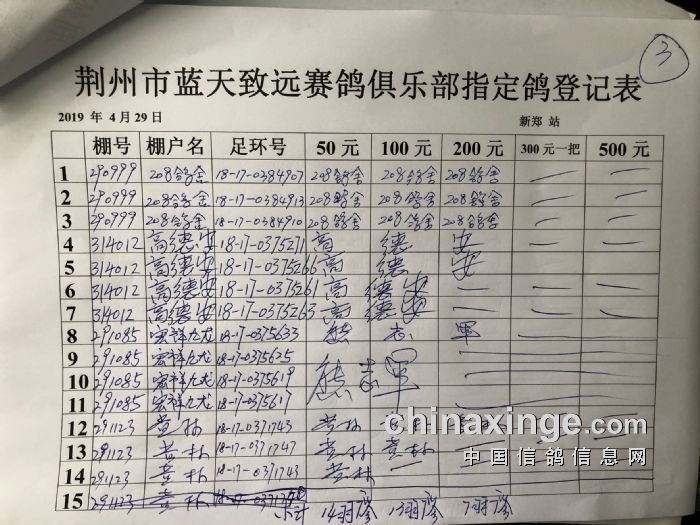 3
荆州市蓝天致远赛鸽俱乐部指定鸽登记表
2019 年 4月 29 日 新郑 站
棚号 棚户名 足环号 50 元 100 元 200 元 300 元一把 500 元
1 290999 208鸽舍 18-17-0384907 208鸽舍 208鸽舍 208鸽舍 — —
2 290999 208鸽舍 18-17-0384913 208鸽舍 208鸽舍 208鸽舍 — —
3 290999 208鸽舍 18-17-0384910 208鸽舍 208鸽舍 208鸽舍 — —
4 314012 高德安 18-17-0375271 高 德 安 — —
5 314012 高德安 18-17-0375266 高 德 安
6 314012 高德安 18-17-0375261 高 德安 — — —
7 314012 高德安 18-17-0375263 高 德安 — — —
8 291085 宏祥九龙 18-17-0375633 熊 志 军
9 291085 宏祥九龙 18-17-0375625
10 291085 宏祥九龙 18-17-0375619 熊 志 军
11 291085 宏祥九龙 18-17-0375617
12 291123 18-17-0371743
13 291123 18-17-0371747
14 291123 18-17-0371743
15 291123
14羽 13羽 7羽
chinaxinge.com
中国信鸽信息网